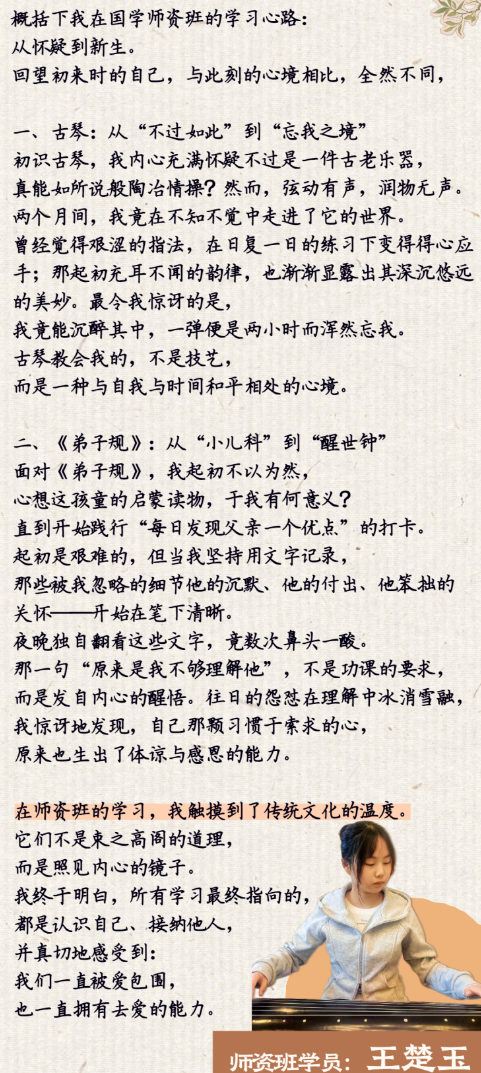 概括下我在国学师资班的学习心路：
从怀疑到新生。
回望初来时的自己，与此刻的心境相比，全然不同，
一、古琴：从“不过如此”到“忘我之境”
初识古琴，我内心充满怀疑不过是一件古老乐器，
真能如所说般陶冶情操？然而，弦动有声，润物无声。
两个月间，我竟在不知不觉中走进了它的世界。
曾经觉得艰涩的指法，在日复一日的练习下变得得心应
手；那起初充耳不闻的韵律，也渐渐显露出其深沉悠远
的美妙。最令我惊讶的是，
我竟能沉醉其中，一弹便是两小时而浑然忘我。
古琴教会我的，不是技艺，
而是一种与自我与时间和平相处的心境。
二、《弟子规》：从“小儿科”到“醒世钟”
面对《弟子规》，我起初不以为然，
心想这孩童的启蒙读物，于我有何意义？
直到开始践行“每日发现父亲一个优点”的打卡。
起初是艰难的，但当我坚持用文字记录，
那些被我忽略的细节他的沉默、他的付出、他笨拙的
关怀——开始在笔下清晰。
夜晚独自翻看这些文字，竟数次鼻头一酸。
那一句“原来是我不够理解他”，不是功课的要求，
而是发自内心的醒悟。往日的怨怼在理解中冰消雪融，
我惊讶地发现，自己那颗习惯于索求的心，
原来也生出了体谅与感恩的能力。
在师资班的学习，我触摸到了传统文化的温度。
它们不是束之高阁的道理，
而是照见内心的镜子。
我终于明白，所有学习最终指向的，
都是认识自己、接纳他人，
并真切地感受到：
我们一直被爱包围，
也一直拥有去爱的能力。
师资班学员：王楚玉